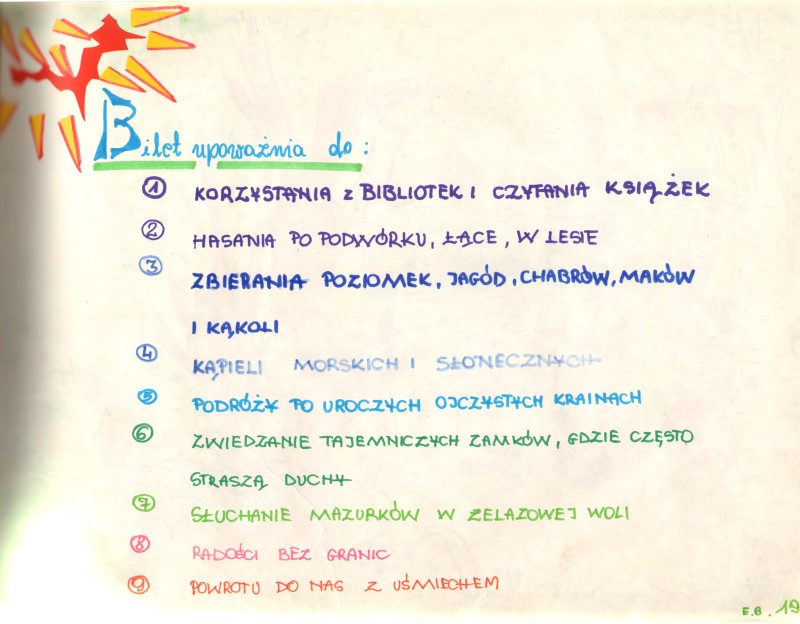 Bilet upoważnia do:
1 KORZYSTANIA z BIBLIOTEK I CZYTANIA KSIĄŻEK
2 HASANIA PO PODWÓRKU, ŁĄCE, W LESIE
3 ZBIERANIA POZIOMEK, JAGÓD, CHABRÓW, MAKÓW
I KĄKOLI
4 KĄPIELI MORSKICH I SŁONECZNYCH
5 PODRÓŻY PO UROCZYCH OJCZYSTYCH KRAINACH
6 ZWIEDZANIE TAJEMNICZYCH ZAMKÓW, GDZIE CZĘSTO
STRASZĄ DUCHY
7 SŁUCHANIE MAZURKÓW W ŻELAZOWEJ WOLI
8 RADOŚCI BEZ GRANIC
9 POWROTU DO NAS Z UŚMIECHEM
E.B. 19